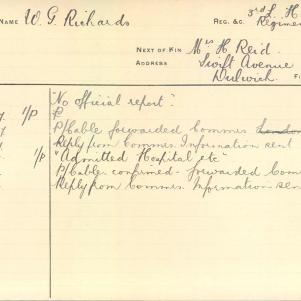 NAME W. G. Richards
REG. &C. 3rd L. H.
Regimen
NEXT OF KIN Mrs H Reid.
ADDRESS Swift Avenue
Dulwich.
"No official report".
P/Cable forwarded Commrs London
Reply from Commrs. Information sent
1/P "Admitted Hospital etc"
P/Cable confirmed - forwarded Com
Reply from Commrs. Information sen